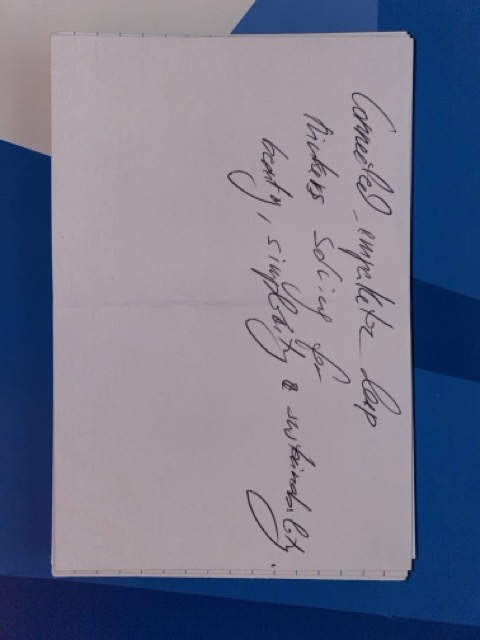 Connected, empathetic deep
thinkers solving for
beauty, simplicity & sustainability.